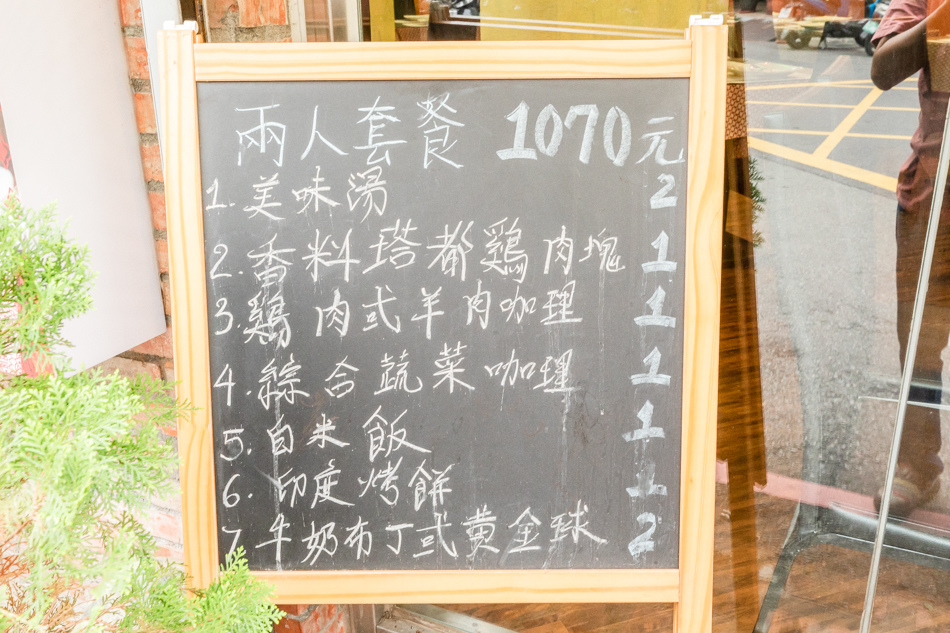 兩人套餐 1070元
1. 美味湯 2
2. 香料塔都鷄肉塊 1
3. 鷄肉或羊肉咖理 1
4. 綜合蔬菜咖理 1
5. 白米飯 1
6. 印度烤餅 1
7 牛奶布丁或黃金球 2